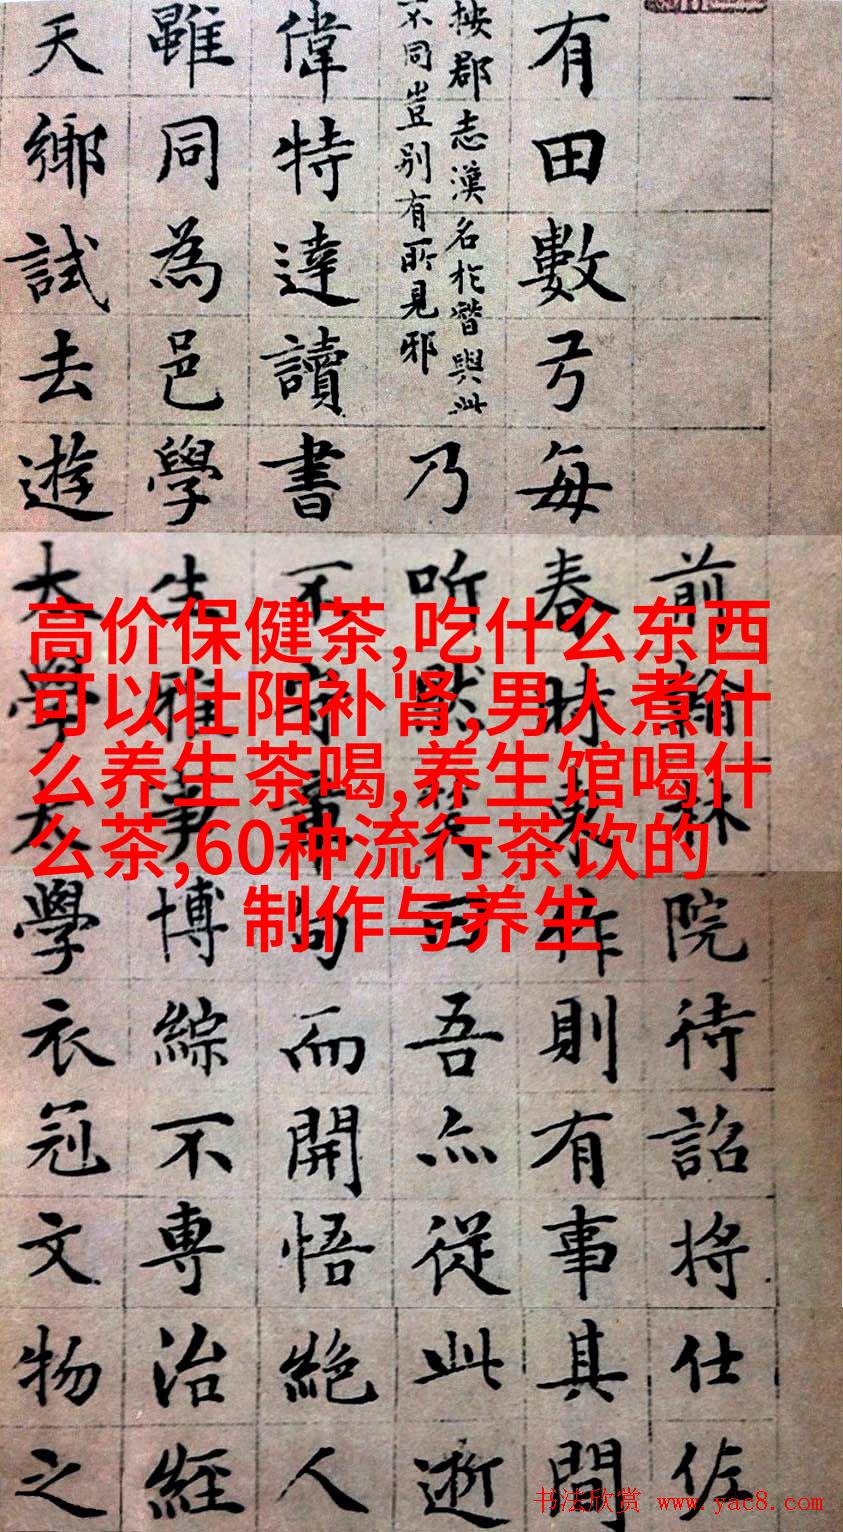 前翰林院待詔將仕佐
有田數弓每春時東作則有事其間
按郡志漢名於與此
不同豈别有所見邪
乃听曰吾亦從此逝
偉特達讀書不守章句而開悟絕人
雖同為邑學生雅事博綜不專治經
天鄉試去遊太學太學衣冠文物之
高价保健茶,吃什么东西
可以壮阳补肾,男人煮什
么养生茶喝,养生馆喝什
么茶,60种流行茶饮的
制作与养生
书法欣赏 www.yac8.com